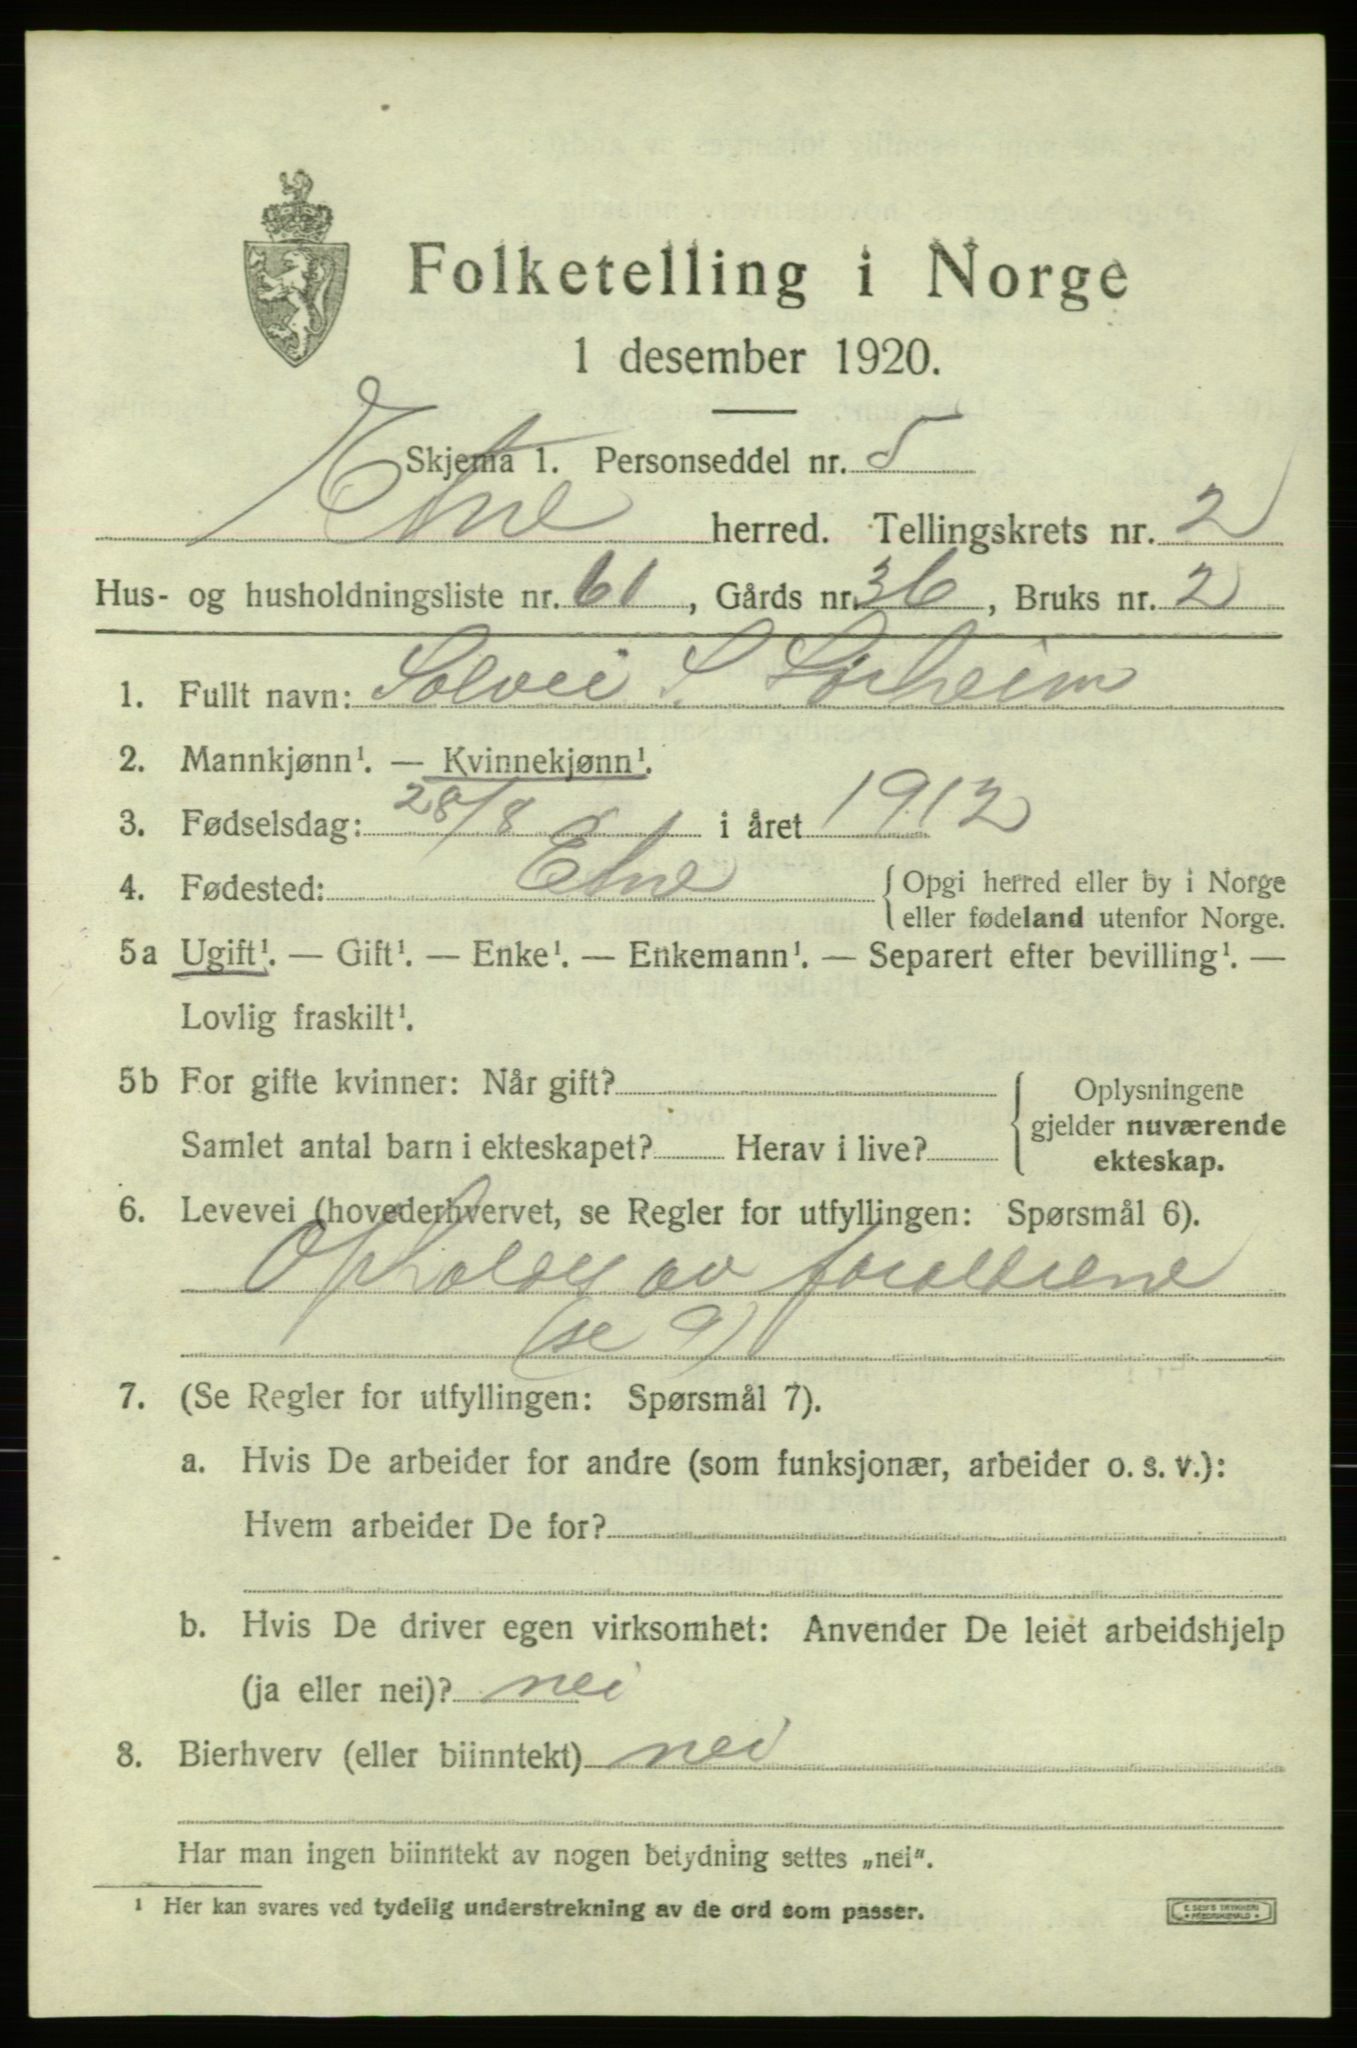 Folketelling i Norge
1 desember 1920.
Skjema 1. Personseddel nr. 5
Etne herred. Tellingskrets nr. 2
Hus- og husholdningsliste nr. 61, Gårds nr. 36, Bruks nr. 2
1. Fullt navn: Solvei S. Sørheim
2. Mannkjønn¹. — Kvinnekjønn¹.
3. Fødselsdag: 28/8 i året 1912
4. Fødested: Etne { Opgi herred eller by i Norge
eller fødeland utenfor Norge.
5a Ugift¹. — Gift¹. — Enke¹. — Enkemann¹. — Separert efter bevilling¹. —
Lovlig fraskilt¹.
5b For gifte kvinner: Når gift? { Oplysningene
gjelder nuværende
Samlet antal barn i ekteskapet? Herav i live? ekteskap.
6. Levevei (hovederhvervet, se Regler for utfyllingen: Spørsmål 6).
Opholdes av forældrene
(se 9)
7. (Se Regler for utfyllingen: Spørsmål 7).
a. Hvis De arbeider for andre (som funksjonær, arbeider o. s. v.):
Hvem arbeider De for?
b. Hvis De driver egen virksomhet: Anvender De leiet arbeidshjelp
(ja eller nei)? nei
8. Bierhverv (eller biinntekt) nei
Har man ingen biinntekt av nogen betydning settes „nei“.
¹ Her kan svares ved tydelig understrekning av de ord som passer.
E. SEM'S TRYKKERI
FREDRIKSHALD